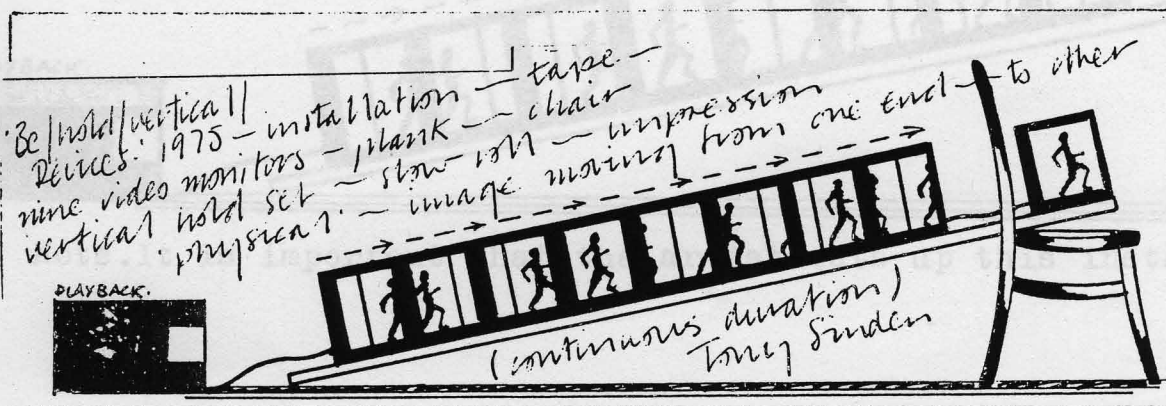 'Be/hold/vertical/
Devices.' 1975 – installation – tape –
nine video monitors – plank – chair
vertical hold set – slow roll – impression
physical. – image moving from one end – to other
PLAYBACK.
important
up this inst
(continuous duration)
Tony Sinden